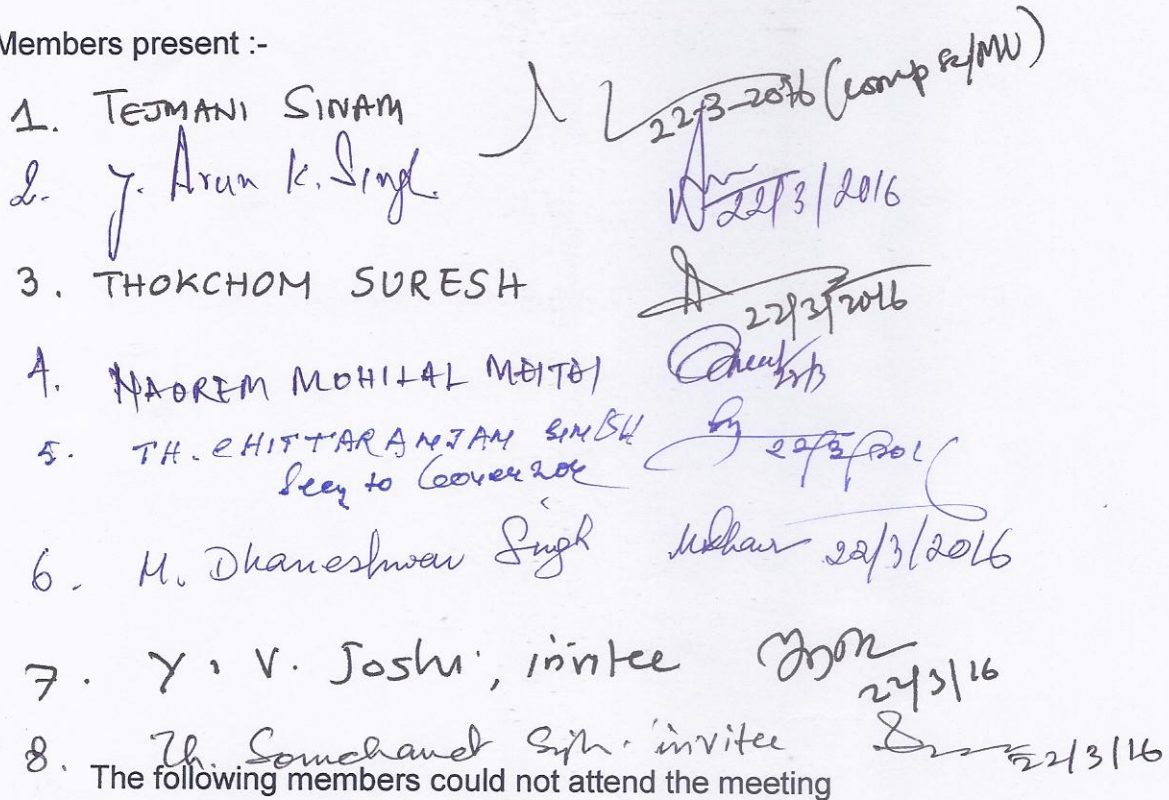 Members present :-
1. TEJMANI SINAM 22-3-2016 (Comp Sc/MU)
2. Y. Arun K. Singh. 22/3/2016
3. THOKCHOM SURESH 22/3/2016
4. NAOREM MOHILAL MEITEI 22/3
5. TH. CHITTARANJAN SINGH 22/3/2016
Secy to Governor
6. M. Dhaneshwar Singh 22/3/2016
7. Y. V. Joshi, invitee 22/3/16
8. Th. Somchand Sigh. invitee 22/3/16
The following members could not attend the meeting